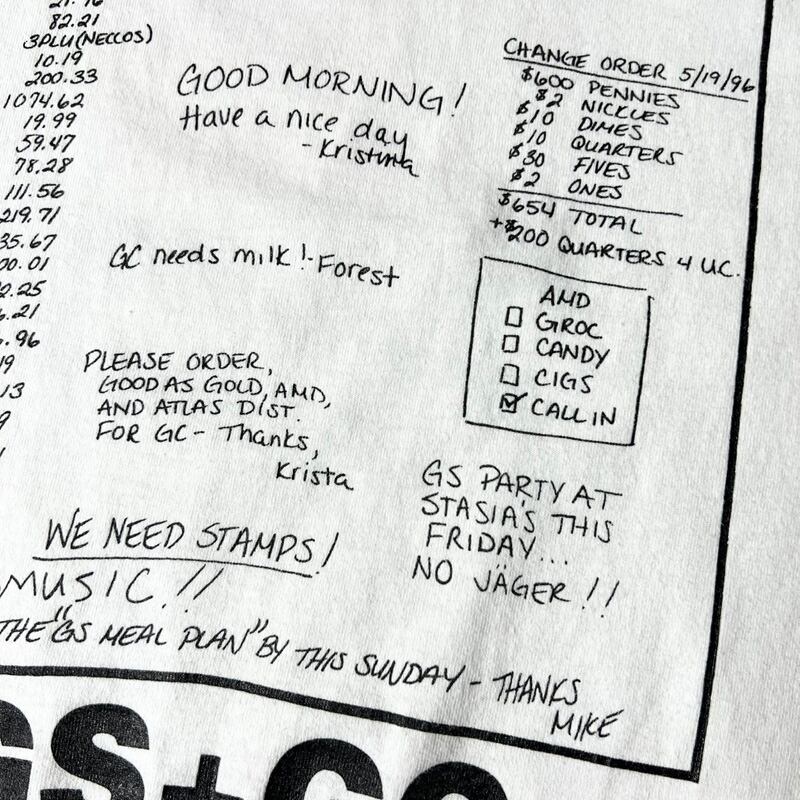 82.21
3PLU (NECCOS)
10.19
200.33
1074.62
19.99
59.47
78.28
111.56
219.71
35.67
00.01
2.25
6.21
.96
19
13
GOOD MORNING!
Have a nice day
- Kristina
GC needs milk! - Forest
PLEASE ORDER,
GOOD AS GOLD, AMD,
AND ATLAS DIST.
FOR GC - Thanks,
Krista
CHANGE ORDER 5/19/96
$600 PENNIES
$2 NICKLES
$10 DIMES
$10 QUARTERS
$30 FIVES
$2 ONES
$654 TOTAL
+$200 QUARTERS 4 UC.
AMD
GROC
CANDY
CIGS
CALL IN
GS PARTY AT
STASIA'S THIS
FRIDAY...
NO JÄGER!!
WE NEED STAMPS!
MUSIC!!
THE "GS MEAL PLAN" BY THIS SUNDAY - THANKS
MIKE
GS+GC